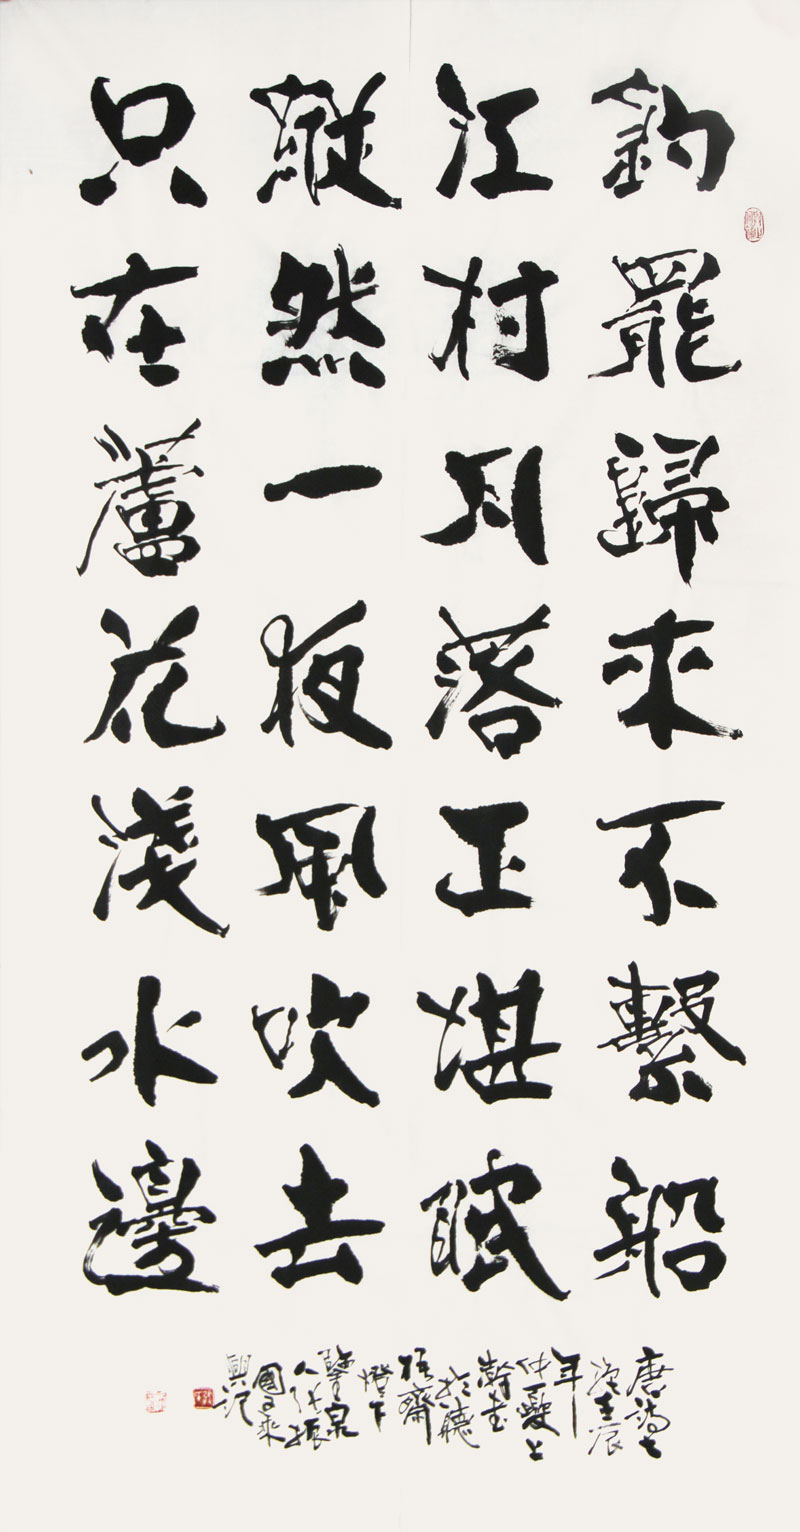 釣罷歸來不繫船
江村月落正堪眠
縱然一夜風吹去
只在蘆花淺水邊
唐詩七
次壬辰
年
仲夏上
瀚書
於聽
梧齋
燈下